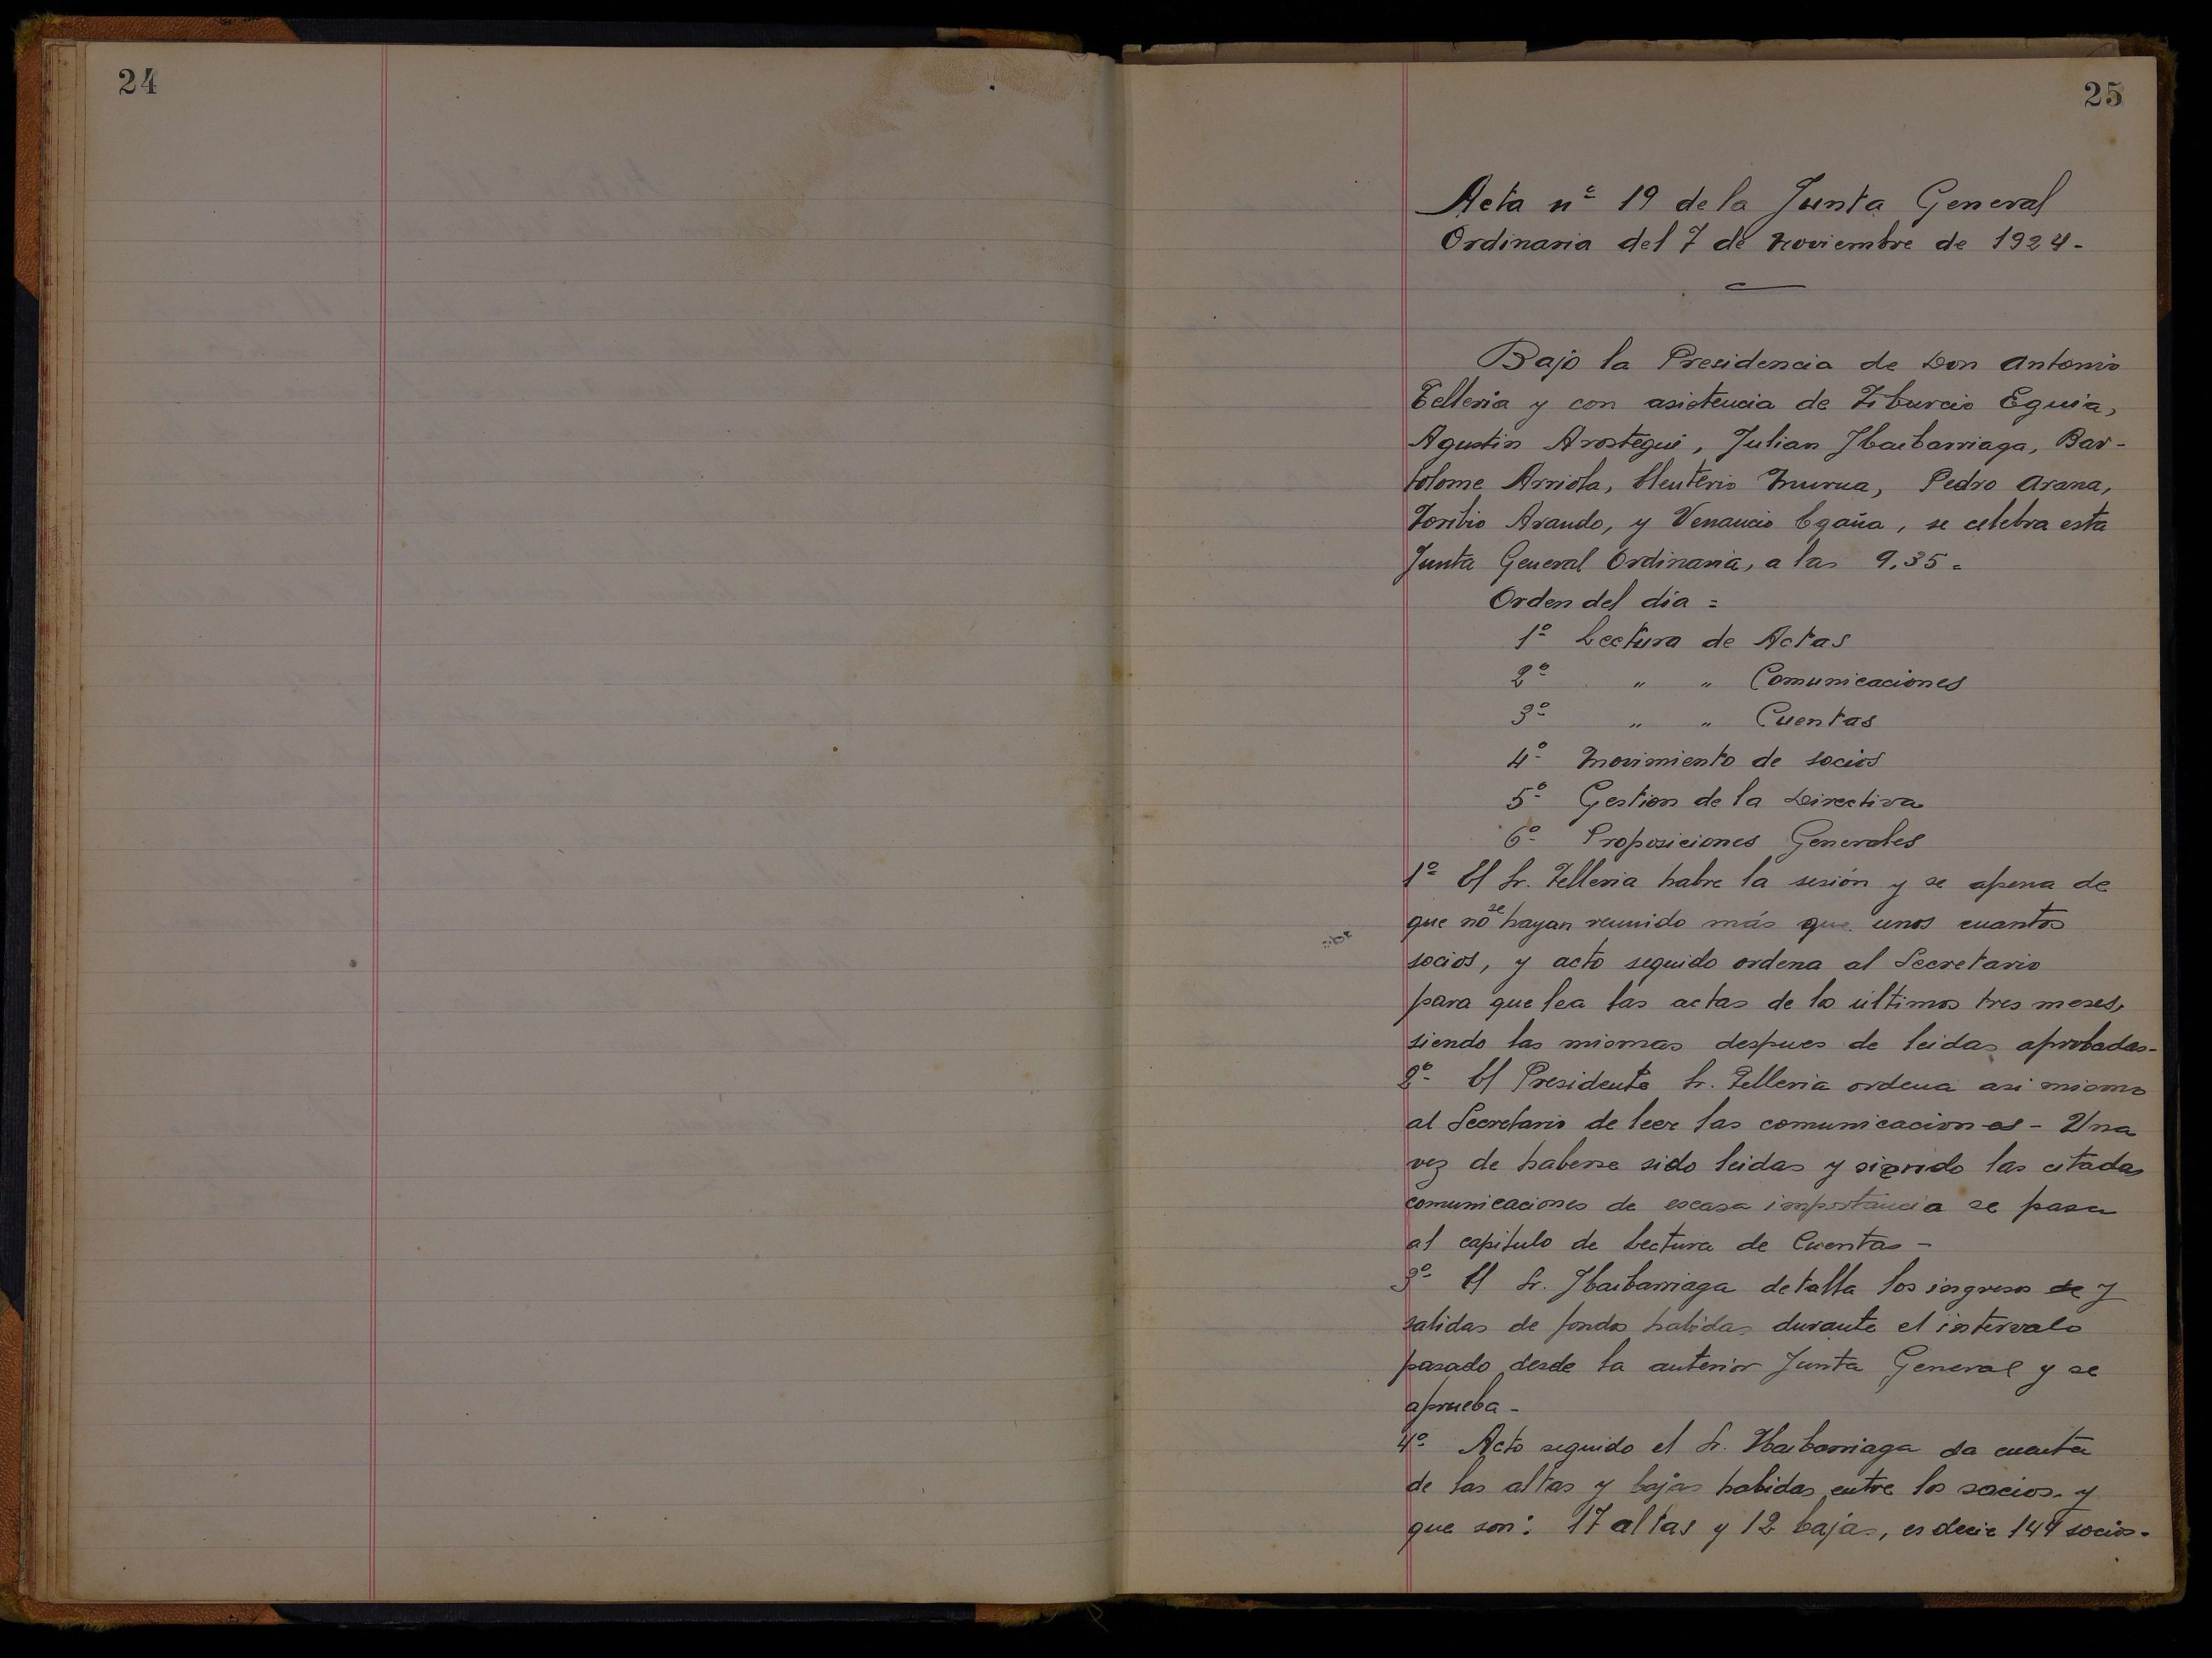 24
25
Acta nº 19 de la Junta General
Ordinaria del 7 de Noviembre de 1924-
Bajo la Presidencia de Don Antonio
Telleria y con asistencia de Tiburcio Eguia,
Agustin Arostegui, Julian Ibaibarriaga, Bar-
tolome Arriola, Eleuterio Murua, Pedro Arana,
Toribio Arando, y Venancio Egaña, se celebra esta
Junta General Ordinaria, a las 9.35=
Orden del dia =
1º Lectura de Actas
2º " " Comunicaciones
3º " " Cuentas
4º Movimiento de socios
5º Gestion de la Directiva
6º Proposiciones Generales
1º El Sr. Telleria habre la sesión y se apena de
que no se hayan reunido más que unos cuantos
socios, y acto seguido ordena al Secretario
para que lea las actas de lo últimos tres meses,
siendo las mismas despues de leidas aprobadas-
2º El Presidente Sr. Telleria ordena asi mismo
al Secretario de leer las comunicaciones - Una
vez de haberse sido leidas y siendo las citadas
comunicaciones de escasa importancia se pasa
al capitulo de Lectura de Cuentas -
3º El Sr. Ibaibarriaga detalla los ingresos de y
salidas de fondos habidas durante el intervalo
pasado desde la anterior Junta General y se
aprueba -
4º Acto seguido el Sr. Ibaibarriaga da cuenta
de las altas y bajas habidas entre los socios y
que son: 17 altas y 12 bajas, es decir 144 socios-